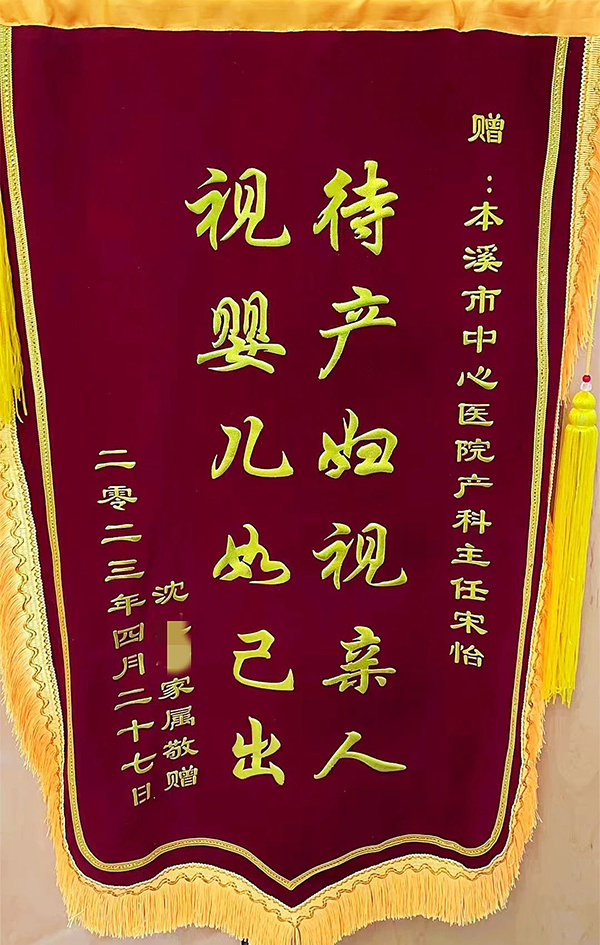 赠：本溪市中心医院产科主任宋怡
待产妇视亲人
视婴儿如己出
沈 家属敬赠
二零二三年四月二十七日